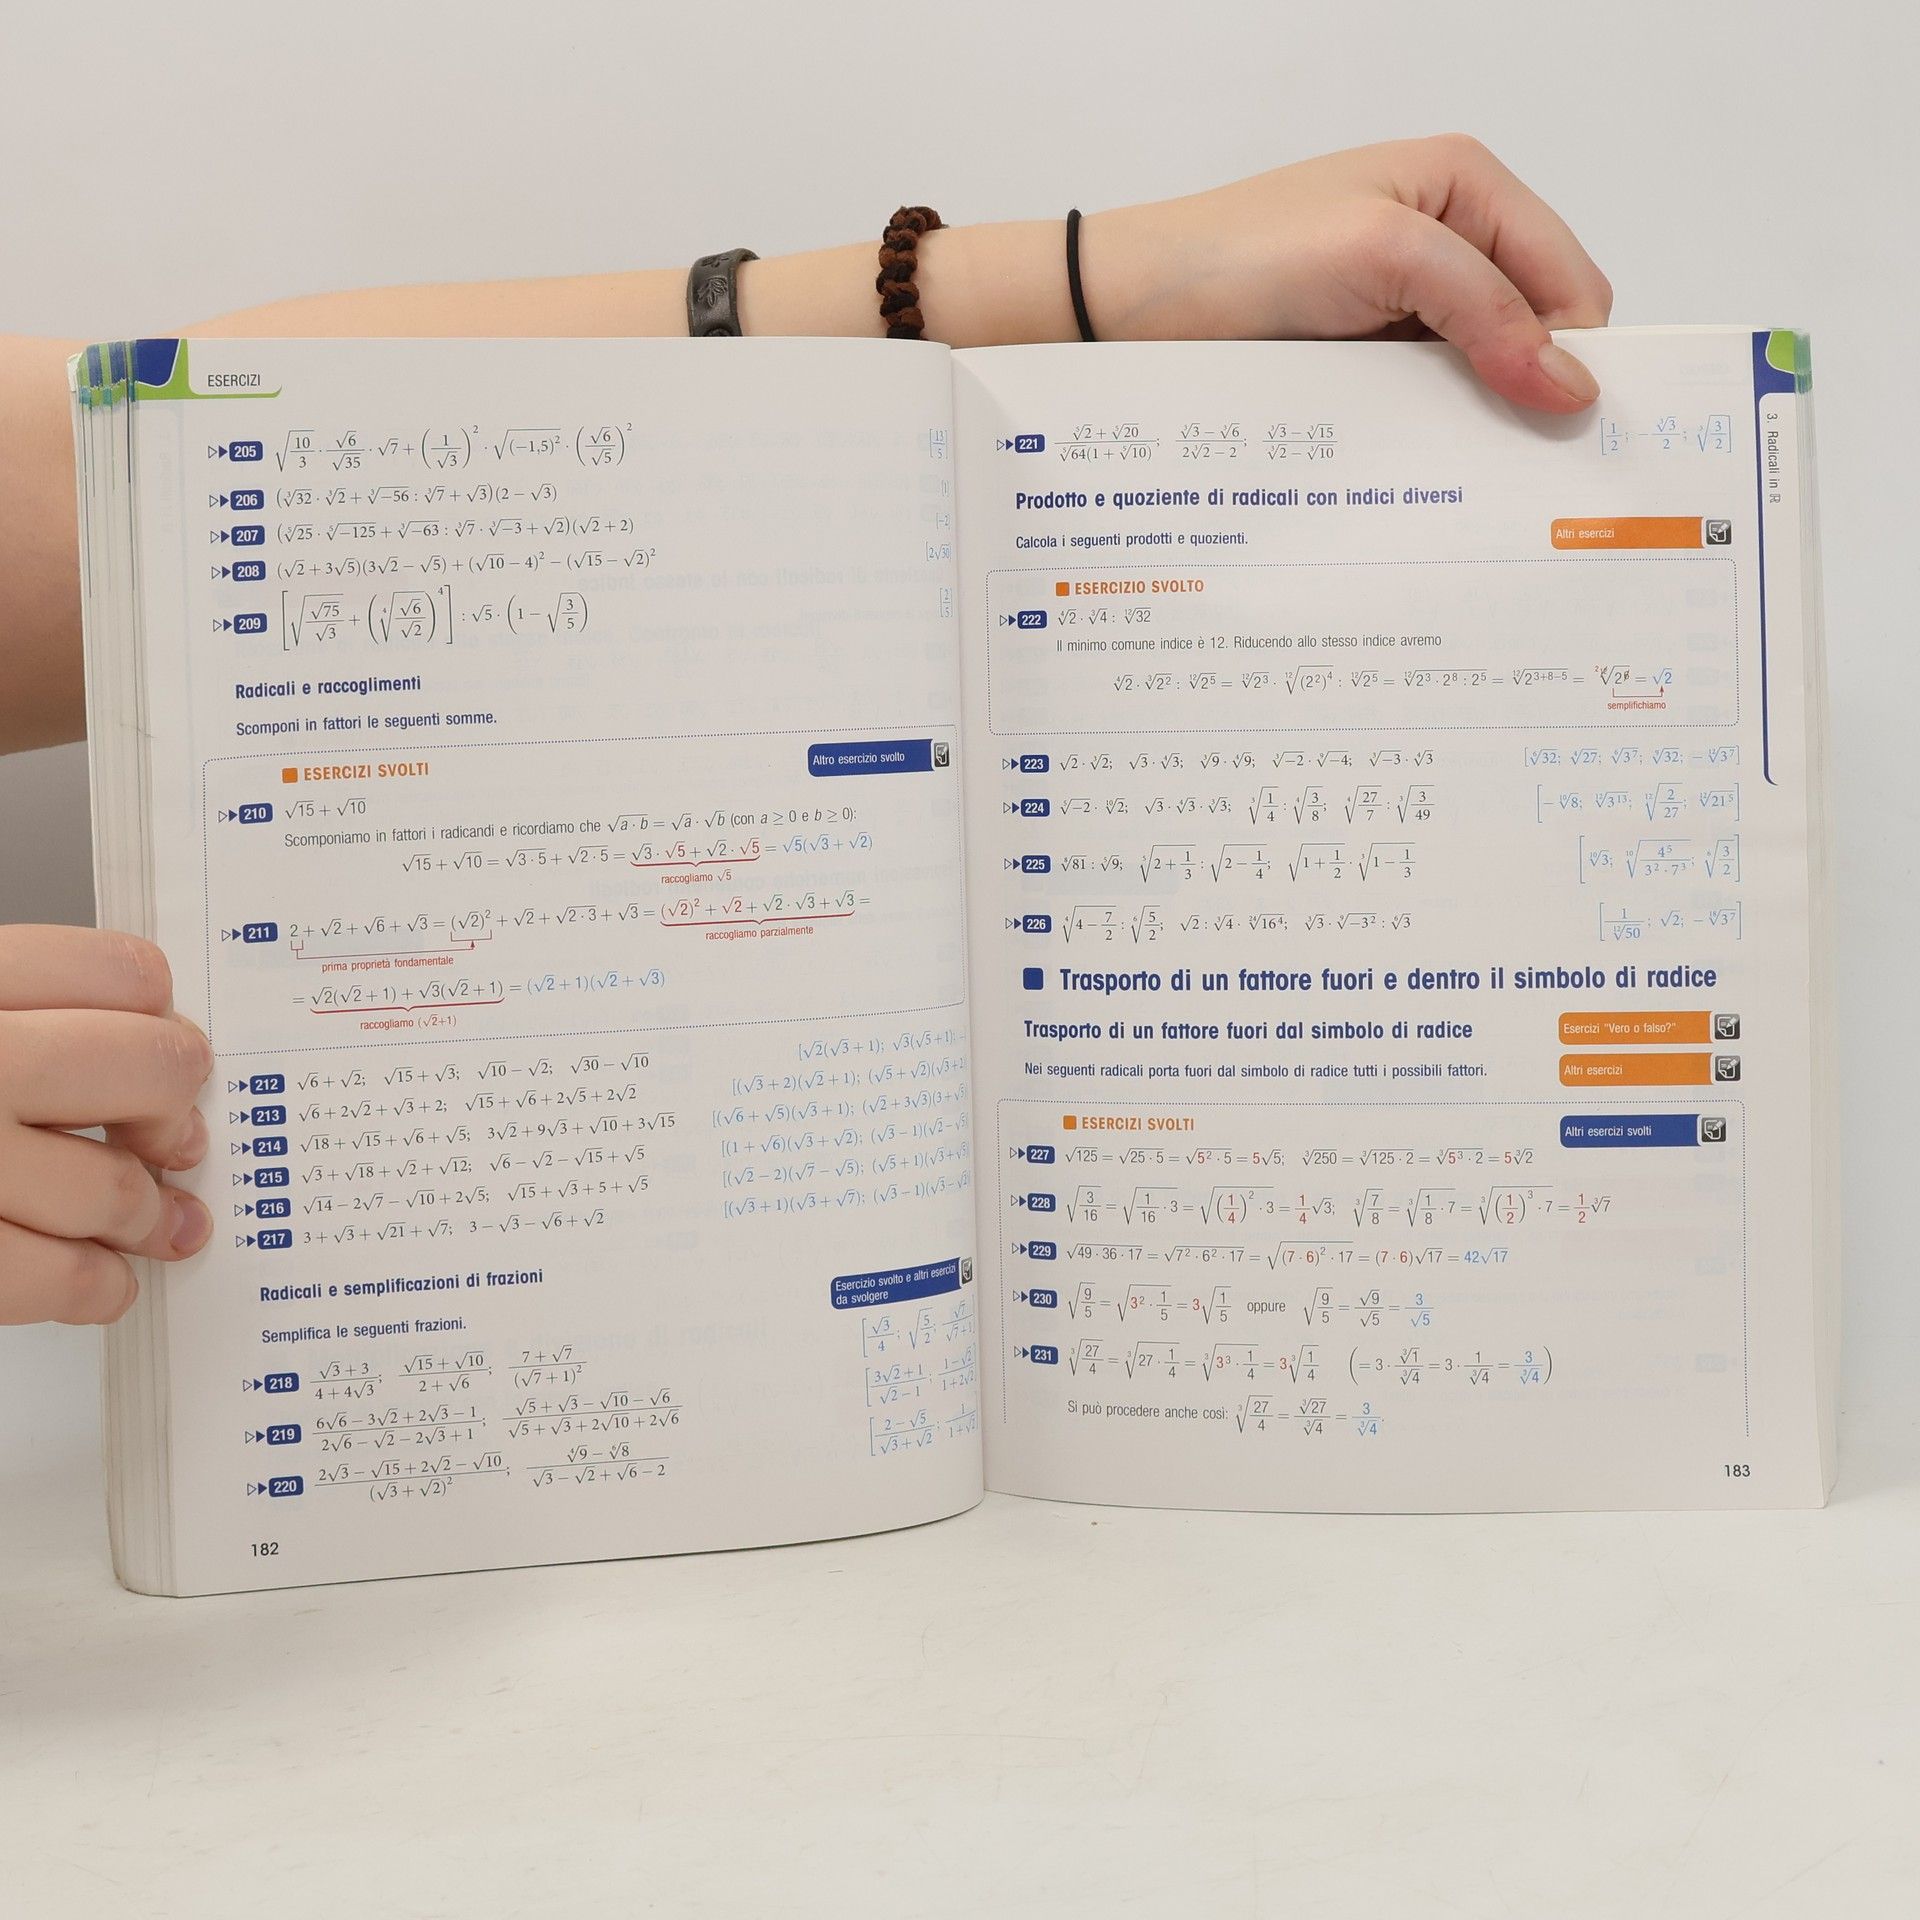 ESERCIZI
205 √(10/3) · √6/√35 · √7 + (1/√3)² · √((−1,5)²) · (√6/√5)² [13/5]
206 (∛32 · ∛2 + ∛−56 : ∛7 + √3)(2 − √3) [1]
207 (⁵√25 · ⁵√−125 + ∛−63 : ∛7 · ∛−3 + √2)(√2 + 2) [−2]
208 (√2 + 3√5)(3√2 − √5) + (√10 − 4)² − (√15 − √2)² [2√30]
209 [√(√75/√3) + (⁴√(√6/√2))⁴] : √5 · (1 − √(3/5)) [2/5]
Radicali e raccoglimenti
Scomponi in fattori le seguenti somme.
ESERCIZI SVOLTI
Altro esercizio svolto
210 √15 + √10
Scomponiamo in fattori i radicandi e ricordiamo che √(a · b) = √a · √b (con a ≥ 0 e b ≥ 0):
√15 + √10 = √(3 · 5) + √(2 · 5) = √3 · √5 + √2 · √5 = √5(√3 + √2)
raccogliamo √5
211 2 + √2 + √6 + √3 = (√2)² + √2 + √(2 · 3) + √3 = (√2)² + √2 + √2 · √3 + √3 =
raccogliamo parzialmente
prima proprietà fondamentale
= √2(√2 + 1) + √3(√2 + 1) = (√2 + 1)(√2 + √3)
raccogliamo (√2+1)
212 √6 + √2; √15 + √3; √10 − √2; √30 − √10 [√2(√3 + 1); √3(√5 + 1);
213 √6 + 2√2 + √3 + 2; √15 + √6 + 2√5 + 2√2 [(√3 + 2)(√2 + 1); (√5 + √2)(√3 + 2)
214 √18 + √15 + √6 + √5; 3√2 + 9√3 + √10 + 3√15 [(√6 + √5)(√3 + 1); (√2 + 3√3)(3 + √5)
215 √3 + √18 + √2 + √12; √6 − √2 − √15 + √5 [(1 + √6)(√3 + √2); (√3 − 1)(√2 − √5)
216 √14 − 2√7 − √10 + 2√5; √15 + √3 + 5 + √5 [(√2 − 2)(√7 − √5); (√5 + 1)(√3 + √5)
217 3 + √3 + √21 + √7; 3 − √3 − √6 + √2 [(√3 + 1)(√3 + √7); (√3 − 1)(√3 − √2)
Radicali e semplificazioni di frazioni
Esercizio svolto e altri esercizi
da svolgere
Semplifica le seguenti frazioni.
218 (√3 + 3)/(4 + 4√3); (√15 + √10)/(2 + √6); (7 + √7)/(√7 + 1)² [√3/4; √(5/2); √7/(√7 + 1)]
219 (6√6 − 3√2 + 2√3 − 1)/(2√6 − √2 − 2√3 + 1); (√5 + √3 − √10 − √6)/(√5 + √3 + 2√10 + 2√6) [(3√2 + 1)/(√2 − 1); (1 − √2)/(1 + 2√2)
220 (2√3 − √15 + 2√2 − √10)/(√3 + √2)²; (⁴√9 − ⁶√8)/(√3 − √2 + √6 − 2) [(2 − √5)/(√3 + √2); 1/(1 + √2)
182
3. Radicali in ℝ
221 (⁵√2 + ⁵√20)/(⁵√64(1 + ⁵√10)); (∛3 − ∛6)/(2∛2 − 2); (∛3 − ∛15)/(∛2 − ∛10) [1/2; −∛3/2; ∛(3/2)]
Prodotto e quoziente di radicali con indici diversi
Calcola i seguenti prodotti e quozienti.
Altri esercizi
ESERCIZIO SVOLTO
222 ⁴√2 · ∛4 : ¹²√32
Il minimo comune indice è 12. Riducendo allo stesso indice avremo
⁴√2 · ∛2² : ¹²√2⁵ = ¹²√2³ · ¹²√(2²)⁴ : ¹²√2⁵ = ¹²√(2³ · 2⁸ : 2⁵) = ¹²√2³⁺⁸⁻⁵ = ¹²√2⁶ = √2
semplifichiamo
223 √2 · ∛2; √3 · ⁴√3; ∛9 · ⁶√9; ∛−2 · ⁹√−4; ∛−3 · ⁴√3 [⁶√32; ⁴√27; ⁶√3⁷; ⁹√32; −¹²√3⁷]
224 ⁵√−2 · ¹⁰√2; √3 · ⁴√3 · ∛3; ∛(1/4) : ⁴√(3/8); ⁴√(27/7) : ∛(3/49) [−¹⁰√8; ¹²√3¹³; ¹²√(2/27); ¹²√21⁵]
225 ⁸√81 : ⁵√9; ⁵√(2 + 1/3) : √(2 − 1/4); √(1 + 1/2) · ∛(1 − 1/3) [¹⁰√3; ¹⁰√(4⁵/(3² · 7³)); ⁶√(3/2)]
226 ⁴√(4 − 7/2) : ⁶√(5/2); √2 : ∛4 · ²⁴√16⁴; ∛3 · ⁹√−3² : ⁶√3 [1/¹²√50; √2; −¹⁸√3⁷]
Trasporto di un fattore fuori e dentro il simbolo di radice
Trasporto di un fattore fuori dal simbolo di radice
Esercizi "Vero o falso?"
Nei seguenti radicali porta fuori dal simbolo di radice tutti i possibili fattori.
Altri esercizi
ESERCIZI SVOLTI
Altri esercizi svolti
227 √125 = √(25 · 5) = √(5² · 5) = 5√5; ∛250 = ∛(125 · 2) = ∛(5³ · 2) = 5∛2
228 √(3/16) = √(1/16 · 3) = √((1/4)² · 3) = 1/4 √3; ∛(7/8) = ∛(1/8 · 7) = ∛((1/2)³ · 7) = 1/2 ∛7
229 √(49 · 36 · 17) = √(7² · 6² · 17) = √((7 · 6)² · 17) = (7 · 6)√17 = 42√17
230 √(9/5) = √(3² · 1/5) = 3√(1/5) oppure √(9/5) = √9/√5 = 3/√5
231 ∛(27/4) = ∛(27 · 1/4) = ∛(3³ · 1/4) = 3∛(1/4) (= 3 · ∛1/∛4 = 3 · 1/∛4 = 3/∛4)
Si può procedere anche così: ∛(27/4) = ∛27/∛4 = 3/∛4.
183